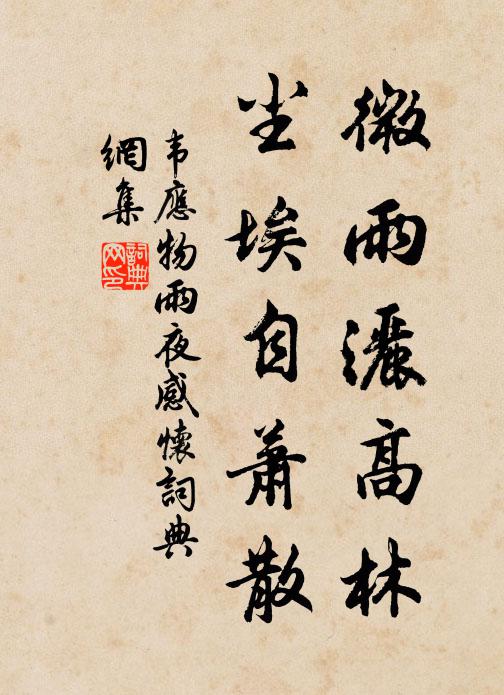 微雨灑高林
尘埃自蕭散
韦應物雨夜感懷詞典
網集
詞典
网印